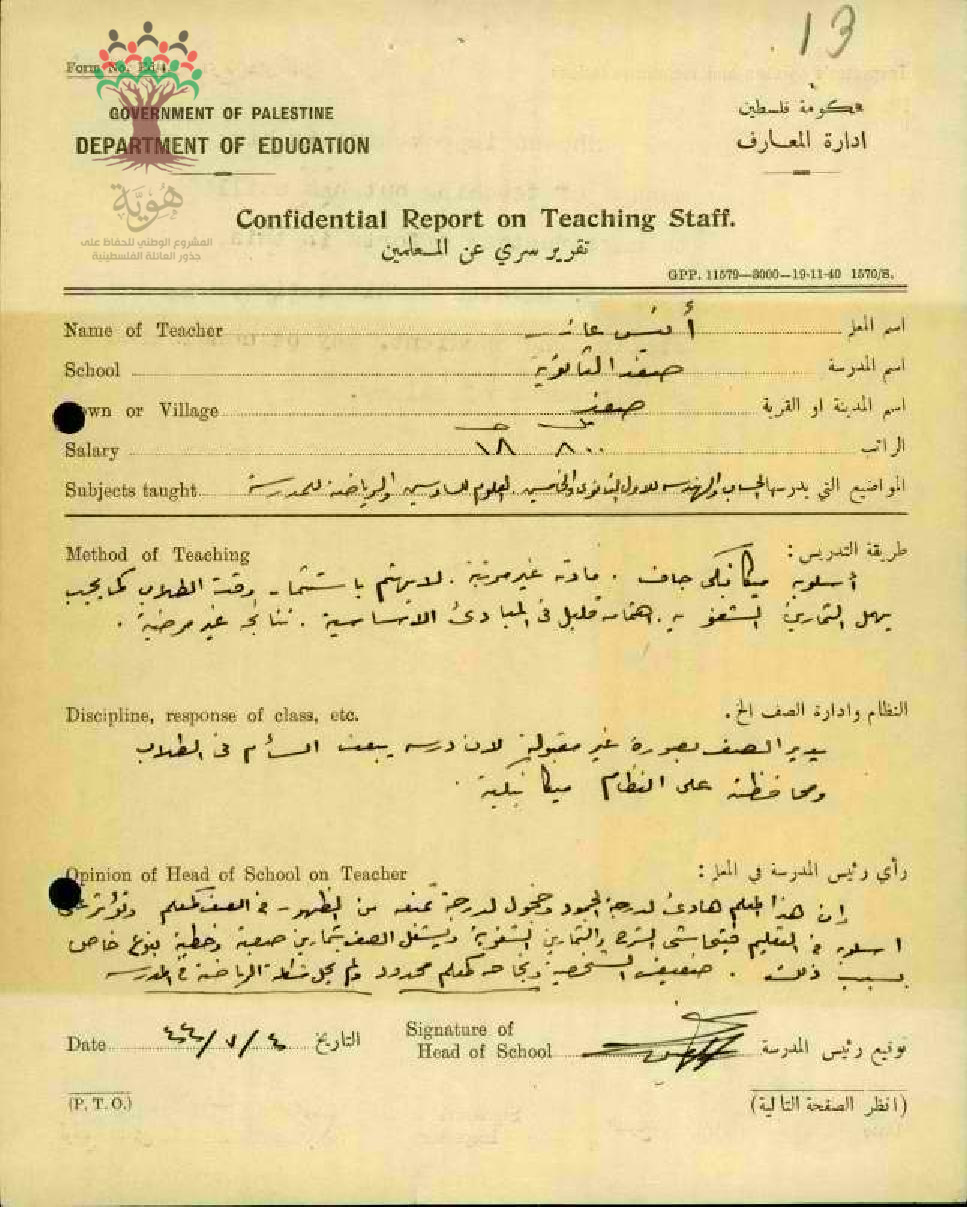 13
Form No. Ed/4.
GOVERNMENT OF PALESTINE
حكومة فلسطين
DEPARTMENT OF EDUCATION
ادارة المعارف
هُوِيَّة
المشروع الوطني للحفاظ على
جذور العائلة الفلسطينية
Confidential Report on Teaching Staff.
تقرير سري عن المعلمين
GPP. 11579—3000—19-11-40 1570/S.
Name of Teacher أنيس اسم المعلم
School صفد الثانوية اسم المدرسة
Town or Village صفد اسم المدينة او القرية
Salary ١٨ ٨٠٠ الراتب
Subjects taught المواضيع التي يدرسها الحساب والهندسة للاول الثانوي والخامس. العلوم للسادس والرياضة للمدرسة
Method of Teaching طريقة التدريس:
أسلوبه ميكانيكي جاف. مادته غير مرتبة. لا يهتم باستثمار وقت الطلاب كما يجب
يهمل التمارين الشفوية. اهتمامه قليل في المبادئ الاساسية. نتائجه غير مرضية.
Discipline, response of class, etc. النظام وادارة الصف الخ.
يدير الصف بصورة غير مقبولة لان درسه يبعث السأم في الطلاب
ومحافظته على النظام ميكانيكية.
Opinion of Head of School on Teacher رأي رئيس المدرسة في المعلم:
إن هذا المعلم هادئ لدرجة الجمود وخجول لدرجة تمنعه من الظهور في الصف كمعلم وتؤثر على
اسلوبه في التعليم فيتحاشى الشرح والتمارين الشفوية ويشغل الصف بتمارين صعبة وخطية بنوع خاص
بسبب ذلك. ضعيف الشخصية ونجاحه كمعلم محدود ولم نشاط الرياضة في المدرسة
Date ٤/٧/٤٤ التاريخ
Signature of
Head of School توقيع رئيس المدرسة
(P. T. O.)
(انظر الصفحة التالية)